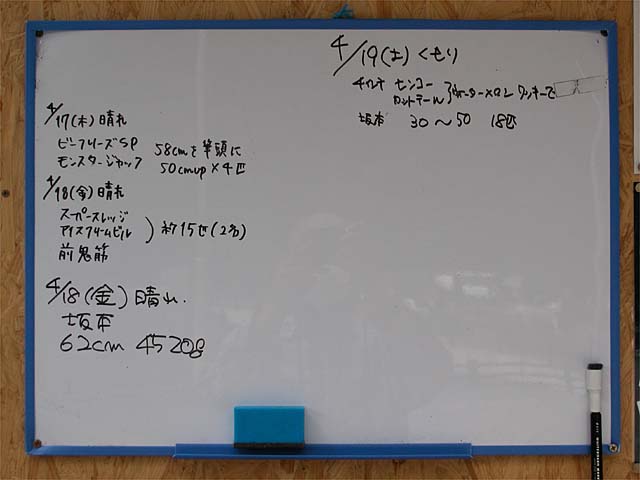 4/17(木)晴れ
ビーフリーズSP
モンスタージャック
58cmを筆頭に
50cmup×4匹
4/18(金)晴れ
スーパースレッジ
アイスクリームビル
)約15匹(2名)
前鬼筋
4/18(金)晴れ.
坂本
62cm 4520g
4/19(土)くもり
4インチ センコー
カットテール
ウォーターメロン ワッキーで
坂本 30〜50 18匹